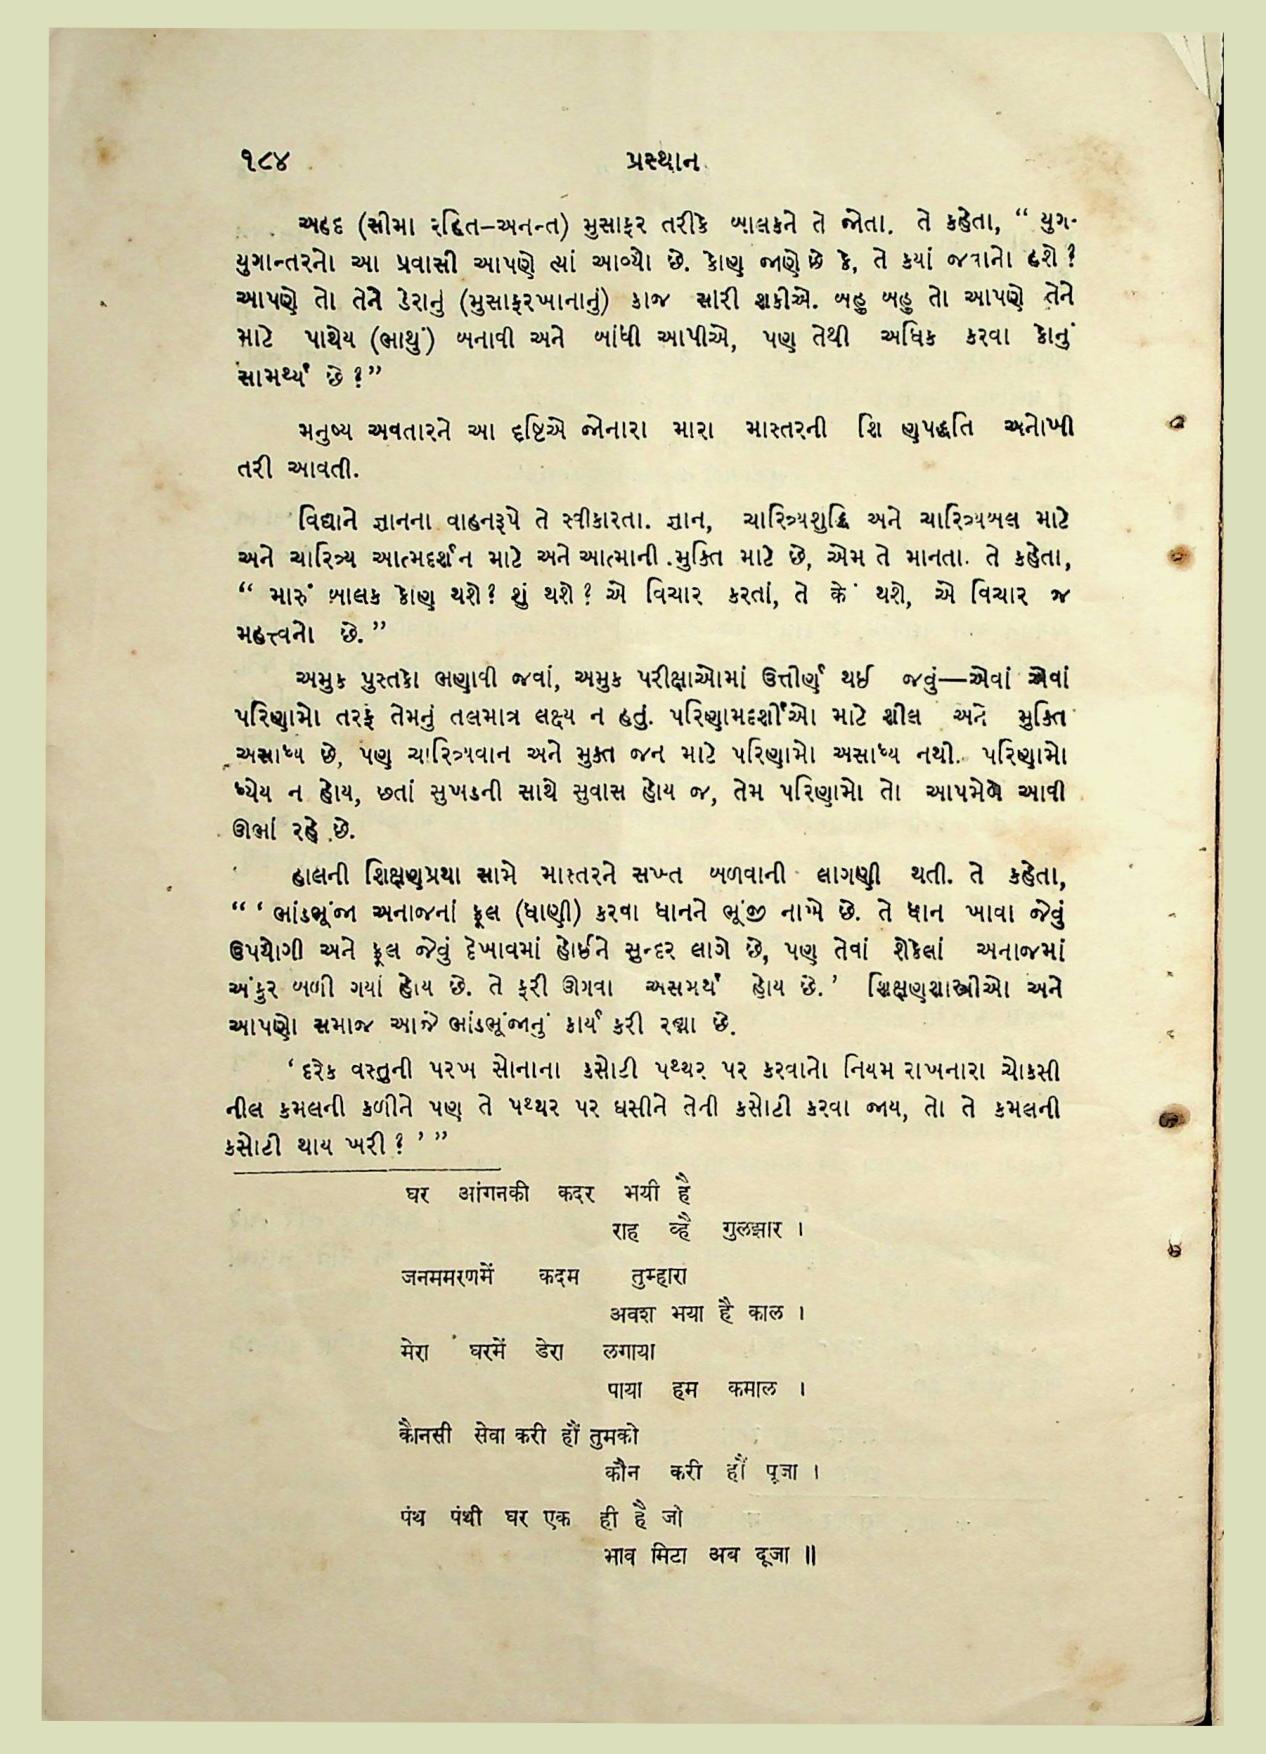 ૧૮૪ પ્રસ્થાન
અહદ (સીમા રહિત–અનન્ત) મુસાફર તરીકે બાલકને તે જોતા. તે કહેતા, “ યુગ-
યુગાન્તરનો આ પ્રવાસી આપણે ત્યાં આવ્યો છે. કોણ જાણે છે કે, તે કયાં જવાનો હશે ?
આપણે તો તેને ડેરાનું (મુસાફરખાનાનું) કાજ સારી શકીએ. બહુ બહુ તો આપણે તેને
માટે પાથેય (ભાથું) બનાવી અને બાંધી આપીએ, પણ તેથી અધિક કરવા કોનું
સામર્થ્ય છે ?”
મનુષ્ય અવતારને આ દૃષ્ટિએ જોનારા મારા માસ્તરની શિ ણપદ્ધતિ અનોખી
તરી આવતી.
વિદ્યાને જ્ઞાનના વાહનરૂપે તે સ્વીકારતા. જ્ઞાન, ચારિત્ર્યશુદ્ધિ અને ચારિત્ર્યબલ માટે
અને ચારિત્ર્ય આત્મદર્શન માટે અને આત્માની મુક્તિ માટે છે, એમ તે માનતા. તે કહેતા,
“ મારું બાલક કોણ થશે ? શું થશે ? એ વિચાર કરતાં, તે કેં થશે, એ વિચાર જ
મહત્ત્વનો છે.”
અમુક પુસ્તકો ભણાવી જવાં, અમુક પરીક્ષાઓમાં ઉત્તીર્ણ થઈ જવું—એવાં એવાં
પરિણામો તરફ તેમનું તલમાત્ર લક્ષ્ય ન હતું. પરિણામદર્શીઓ માટે શીલ અને મુક્તિ
અસાધ્ય છે, પણ ચારિત્ર્યવાન અને મુક્ત જન માટે પરિણામો અસાધ્ય નથી. પરિણામો
ધ્યેય ન હોય, છતાં સુખડની સાથે સુવાસ હોય જ, તેમ પરિણામો તો આપમેળે આવી
ઊભાં રહે છે.
હાલની શિક્ષણપ્રથા સામે માસ્તરને સખ્ત બળવાની લાગણી થતી. તે કહેતા,
“ ‘ ભાંડભૂંજા અનાજનાં ફૂલ (ધાણી) કરવા ધાનને ભૂંજી નાખે છે. તે ધાન ખાવા જેવું
ઉપયોગી અને ફૂલ જેવું દેખાવમાં હોઈને સુન્દર લાગે છે, પણ તેવાં શેકેલાં અનાજમાં
અંકુર બળી ગયાં હોય છે. તે ફરી ઊગવા અસમર્થ હોય છે.’ શિક્ષણશાસ્ત્રીઓ અને
આપણો સમાજ આજે ભાંડભૂંજાનું કાર્ય કરી રહ્યા છે.
‘ દરેક વસ્તુની પરખ સોનાના કસોટી પથ્થર પર કરવાનો નિયમ રાખનારા ચોકસી
નીલ કમલની કળીને પણ તે પથ્થર પર ઘસીને તેની કસોટી કરવા જાય, તો તે કમલની
કસોટી થાય ખરી ? ’ ”
घर आंगनकी कदर भयी है
राह व्है गुलझार ।
जनममरणमें कदम तुम्हारा
अवश भया है काल ।
मेरा घरमें डेरा लगाया
पाया हम कमाल ।
कौनसी सेवा करी हौं तुमको
कौन करी हौं पूजा ।
पंथ पंथी घर एक ही है जो
भाव मिटा अब दूजा ॥